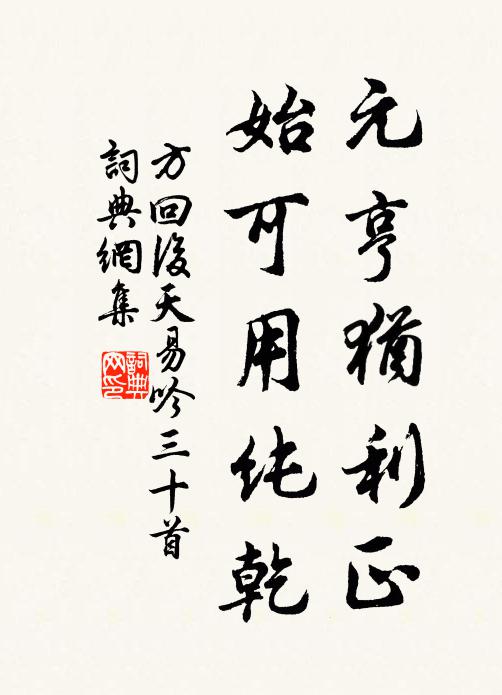 元亨猶利正
始可用純乾
方回後天易吟三十首
詞典網集
詞典网印